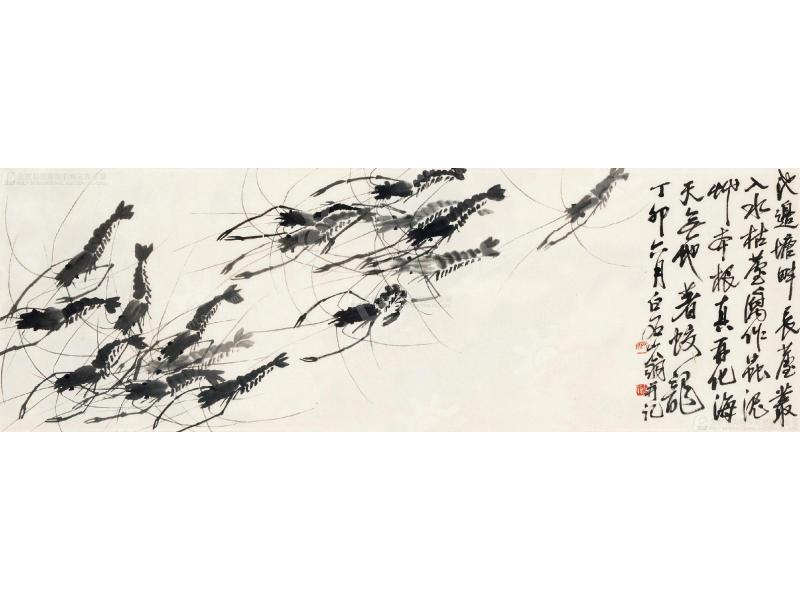 池邊塘畔長蘆叢
入水枯蘆寫作蟲泥
艸本根真再化海
天無地著蛟龍
丁卯六月白石山翁并记